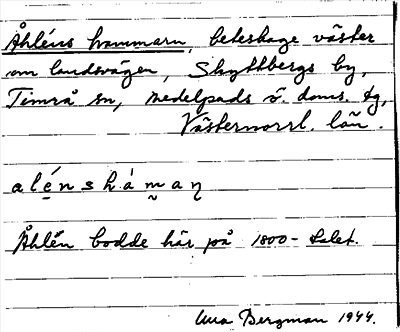 Åhléns hammarn, beteshage väster
om landsvägen, Skyttbergs by,
Timrå sn, Medelpads ö. doms. tg,
Västernorrl. län.
alénshámaɳ
Åhlén bodde här på 1800-talet.
Bergman 1944.